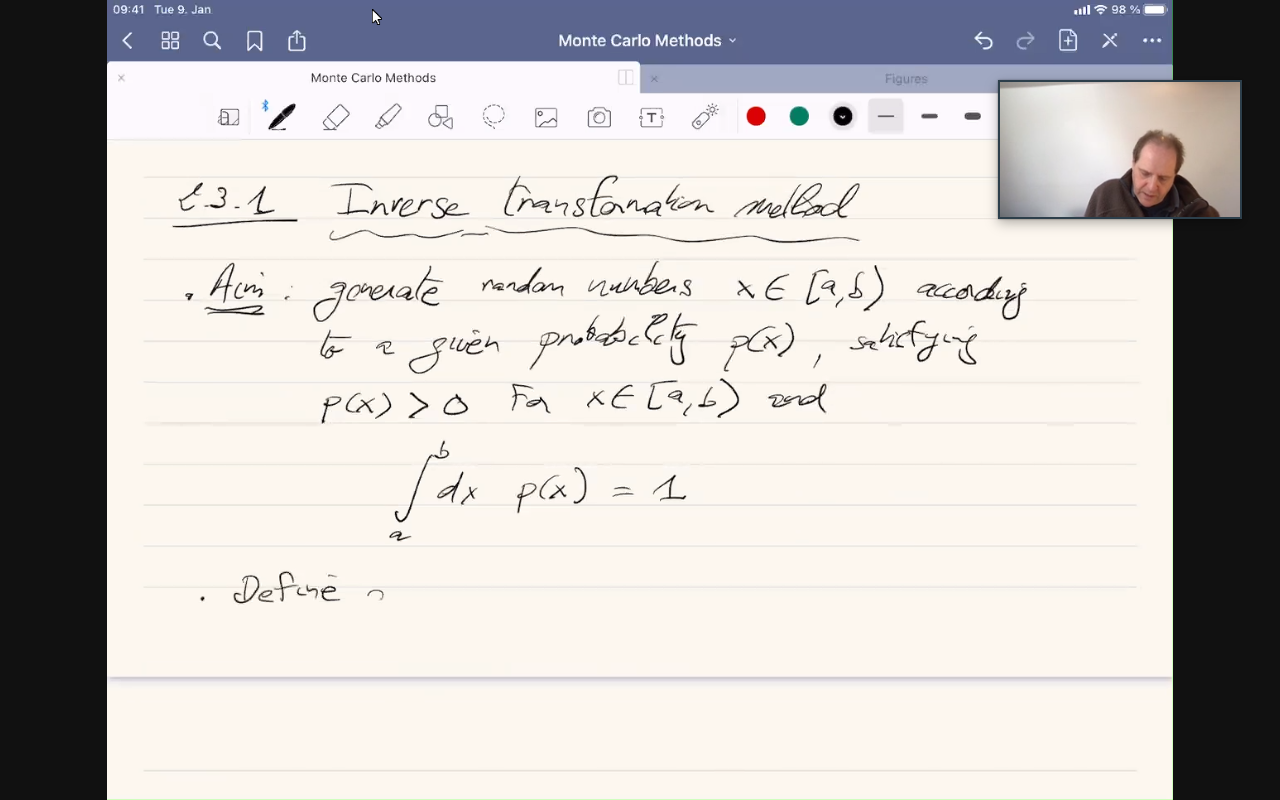 09:41 Tue 9. Jan
98 %
Monte Carlo Methods
Monte Carlo Methods
Figures
T
2.3.1 Inverse transformation method
. Aim : generate random numbers x ∈ [a,b) according
to a given probability p(x), satisfying
p(x) > 0 for x ∈ [a,b) and
∫_a^b dx p(x) = 1
. Define